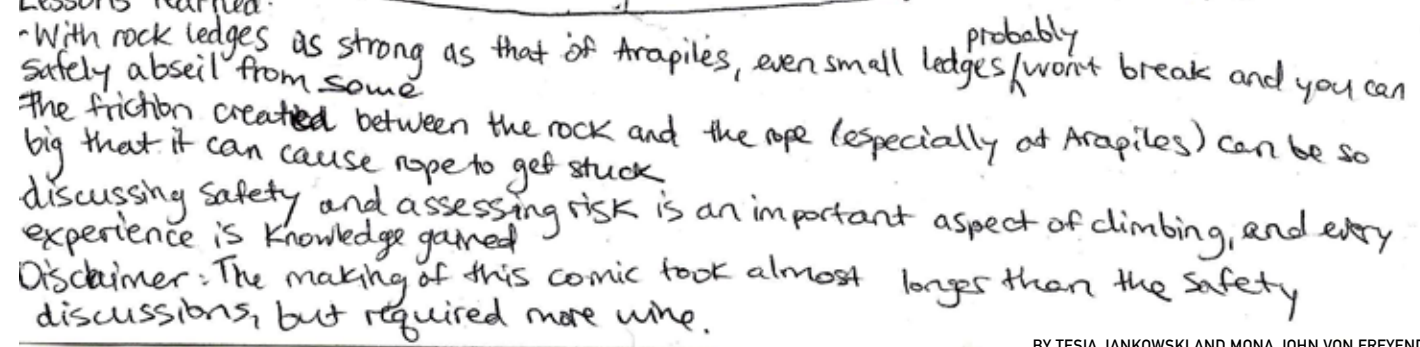 Lessons learned:
-With rock ledges as strong as that of Arapiles, even small ledges probably won't break and you can
safely abseil from some
The friction created between the rock and the rope (especially at Arapiles) can be so
big that it can cause rope to get stuck
discussing safety and assessing risk is an important aspect of climbing, and every
experience is knowledge gained
Disclaimer: The making of this comic took almost longer than the safety
discussions, but required more wine.
BY TESIA JANKOWSKI AND MONA JOHN VON FREYEND